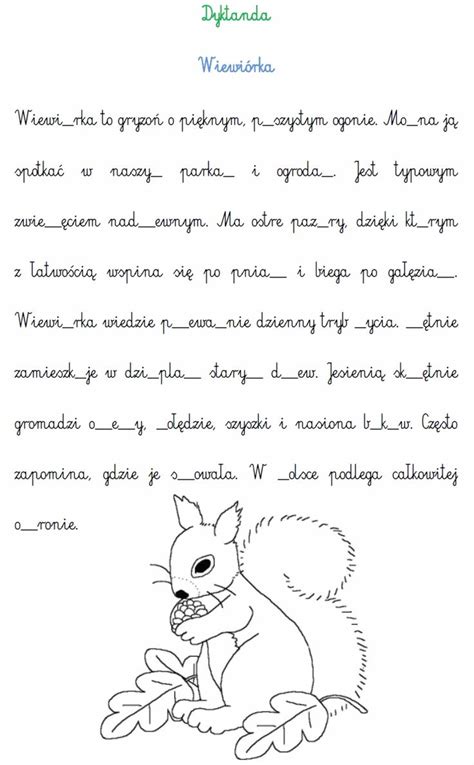 Dyktanda
Wiewiórka
Wiewi_rka to gryzoń o pięknym, p_szystym ogonie. Mo_na ją
spotkać w naszy_ parka_ i ogroda_. Jest typowym
zwie__ęciem nad__ewnym. Ma ostre paz_ry, dzięki kt_rym
z łatwością wspina się po pnia_ i biega po gałęzia_.
Wiewi_rka wiedzie p__ewa_nie dzienny tryb _ycia. __ętnie
zamieszk_je w dzi_pla_ stary_ d__ew. Jesienią sk__ętnie
gromadzi o__e_y, _ołędzie, szyszki i nasiona b_k_w. Często
zapomina, gdzie je s__owała. W _olsce podlega całkowitej
o__ronie.